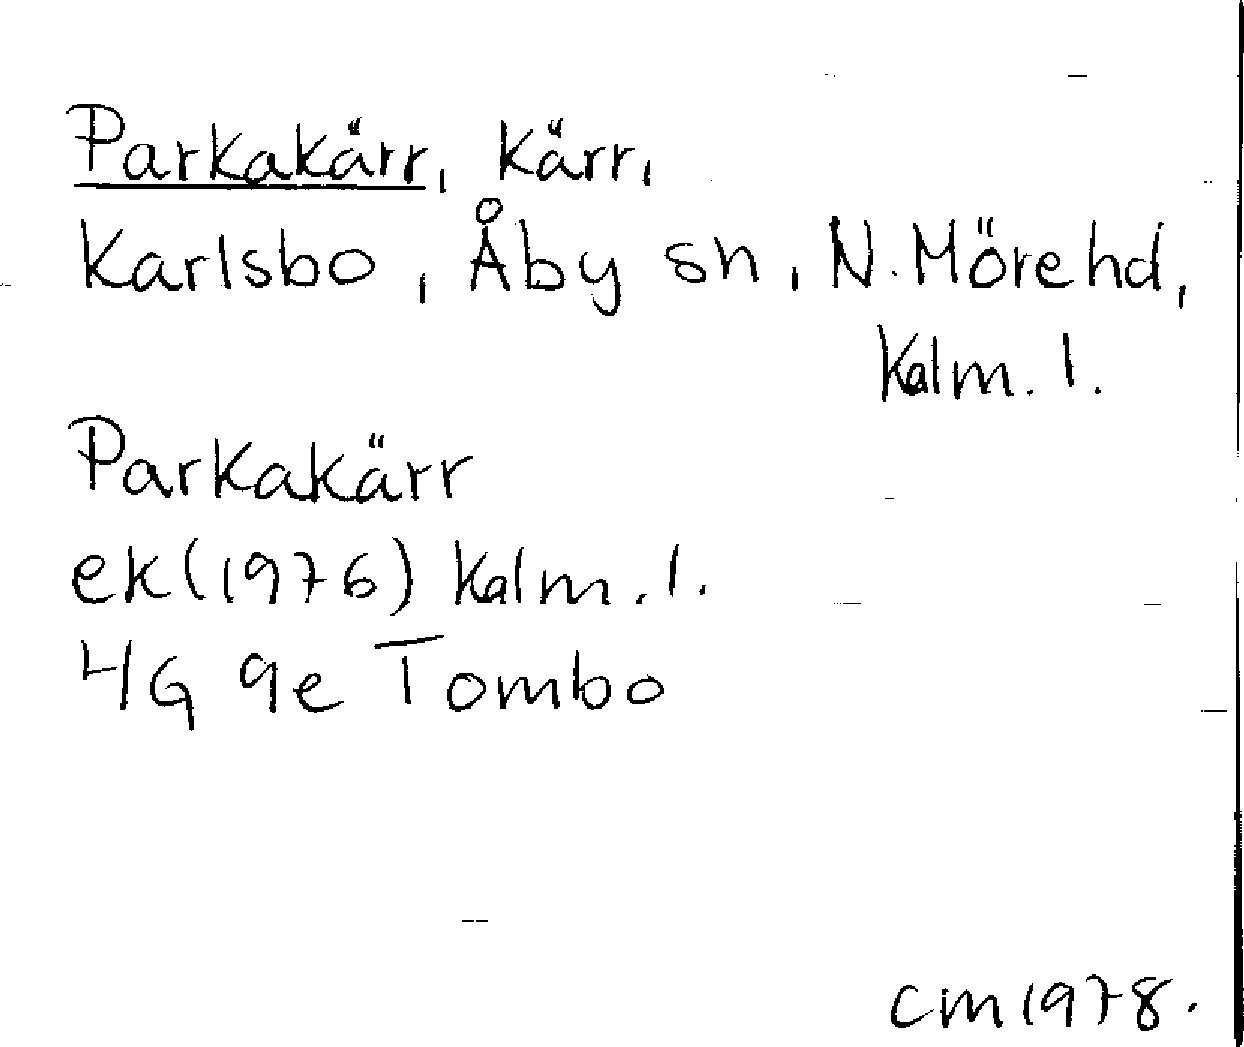 Parkakärr, kärr,
Karlsbo, Åby sn, N. Möre hd,
Kalm. l.
Parkakärr
ek (1976) Kalm. l.
4G 9e Tombo
CM 1978.